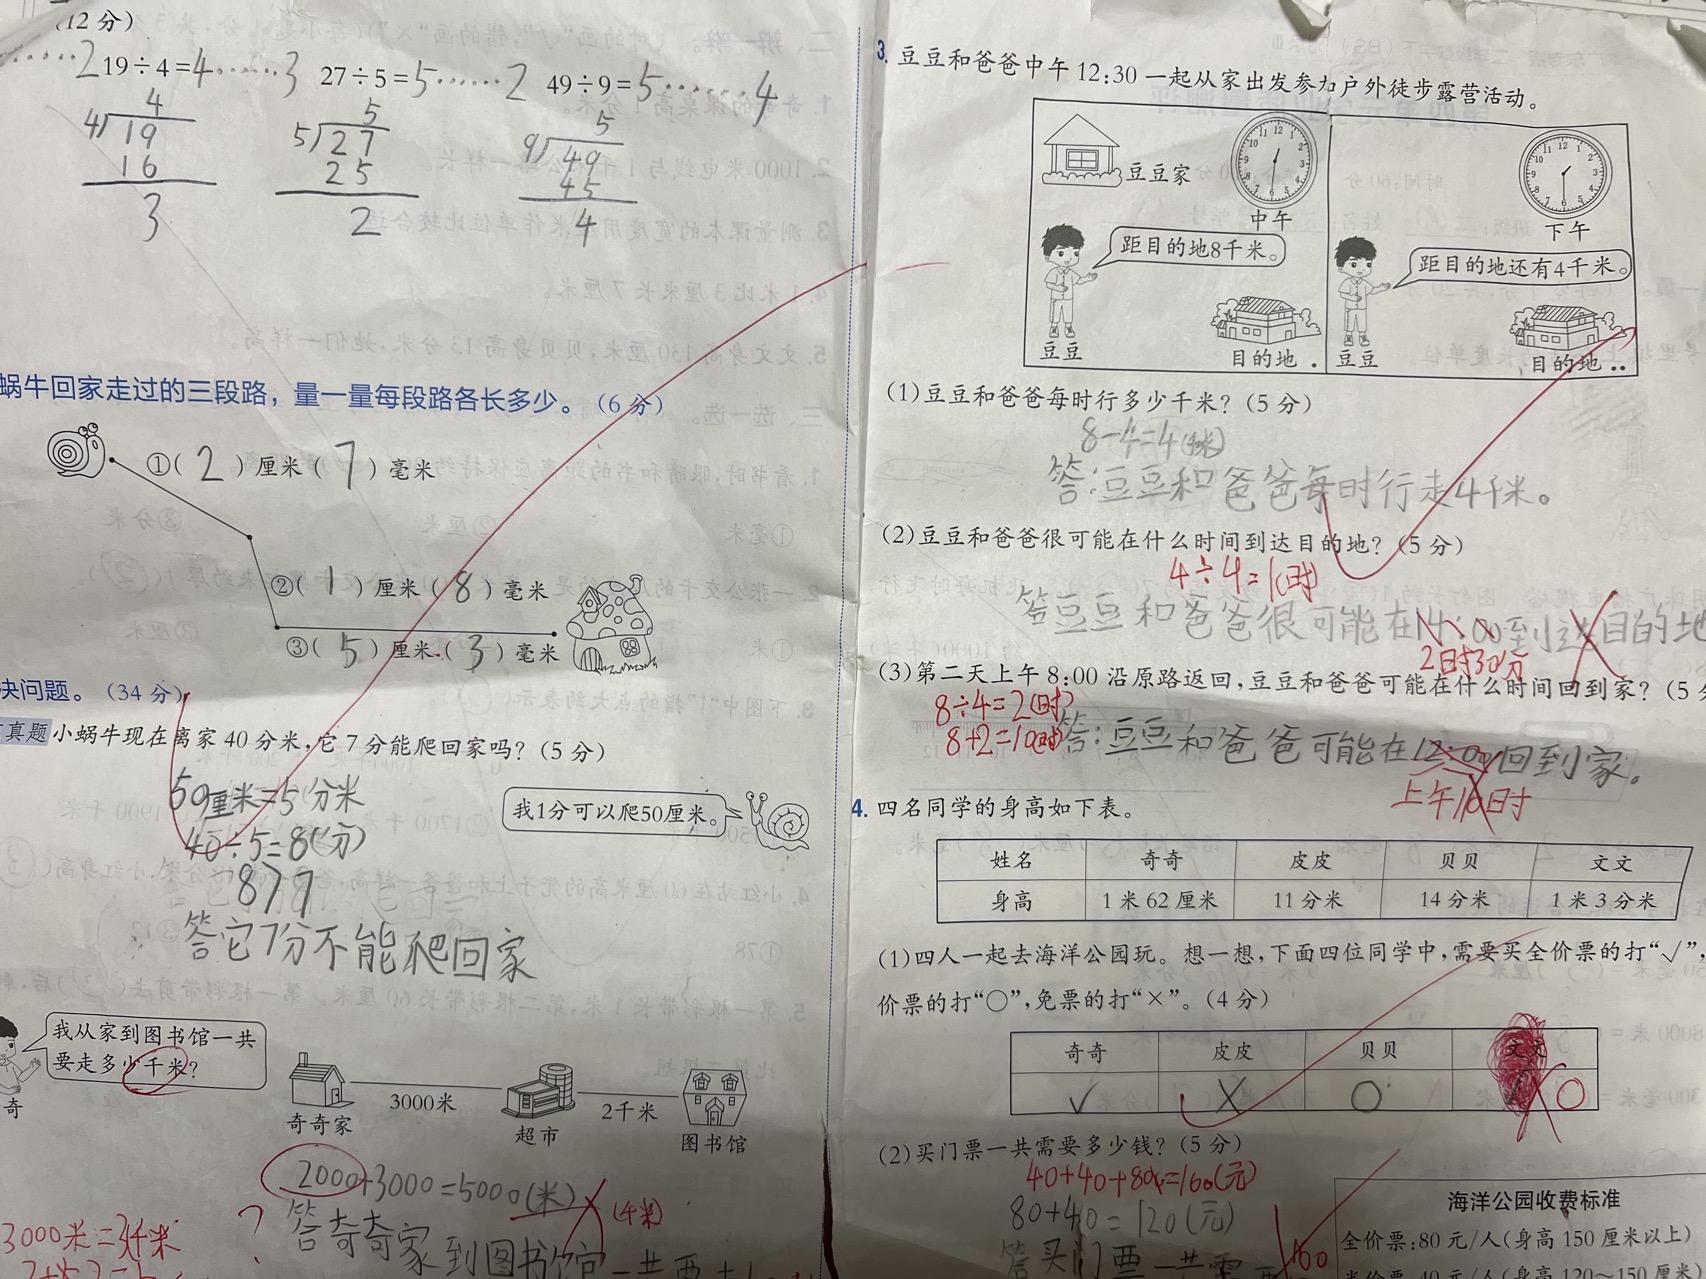 (12分)
2 19÷4=4……3 27÷5=5……2 49÷9=5……4
4
4 19
16
3
5
5 27
25
2
5
9 49
45
4
蜗牛回家走过的三段路，量一量每段路各长多少。(6分)
①( 2 )厘米( 7 )毫米
②( 1 )厘米( 8 )毫米
③( 5 )厘米( 3 )毫米
决问题。(34分)
真题 小蜗牛现在离家40分米，它7分能爬回家吗？(5分)
50厘米=5分米
40÷5=8(分)
8>7
答它7分不能爬回家
我1分可以爬50厘米。
我从家到图书馆一共
要走多少千米?
奇
奇奇家
3000米
超市
2千米
图书馆
2000+3000=5000(米)
(千米)
3000米=3千米
?
答奇奇家到图书馆一共要走
3. 豆豆和爸爸中午12:30一起从家出发参加户外徒步露营活动。
豆豆家
中午
距目的地8千米。
豆豆
目的地
下午
距目的地还有4千米。
豆豆
目的地
(1)豆豆和爸爸每时行多少千米？(5分)
8-4=4(千米)
答:豆豆和爸爸每时行走4千米。
(2)豆豆和爸爸很可能在什么时间到达目的地？(5分)
4÷4=1(时)
答豆豆和爸爸很可能在14:00到达目的地
2时30分
(3)第二天上午8:00沿原路返回，豆豆和爸爸可能在什么时间回到家？(5分
8÷4=2(时)
8+2=10(时)
答:豆豆和爸爸可能在12:00回到家。
上午10时
4. 四名同学的身高如下表。
姓名 奇奇 皮皮 贝贝 文文
身高 1米62厘米 11分米 14分米 1米3分米
(1)四人一起去海洋公园玩。想一想，下面四位同学中，需要买全价票的打“√”，
价票的打“○”，免票的打“×”。(4分)
奇奇 皮皮 贝贝 文文
√ × ○ ○
(2)买门票一共需要多少钱？(5分)
40+40+80=160(元)
80+40=120(元)
答买门票一共需要
160
海洋公园收费标准
全价票:80元/人(身高150厘米以上)
半价票:40元/人(身高120~150厘米)